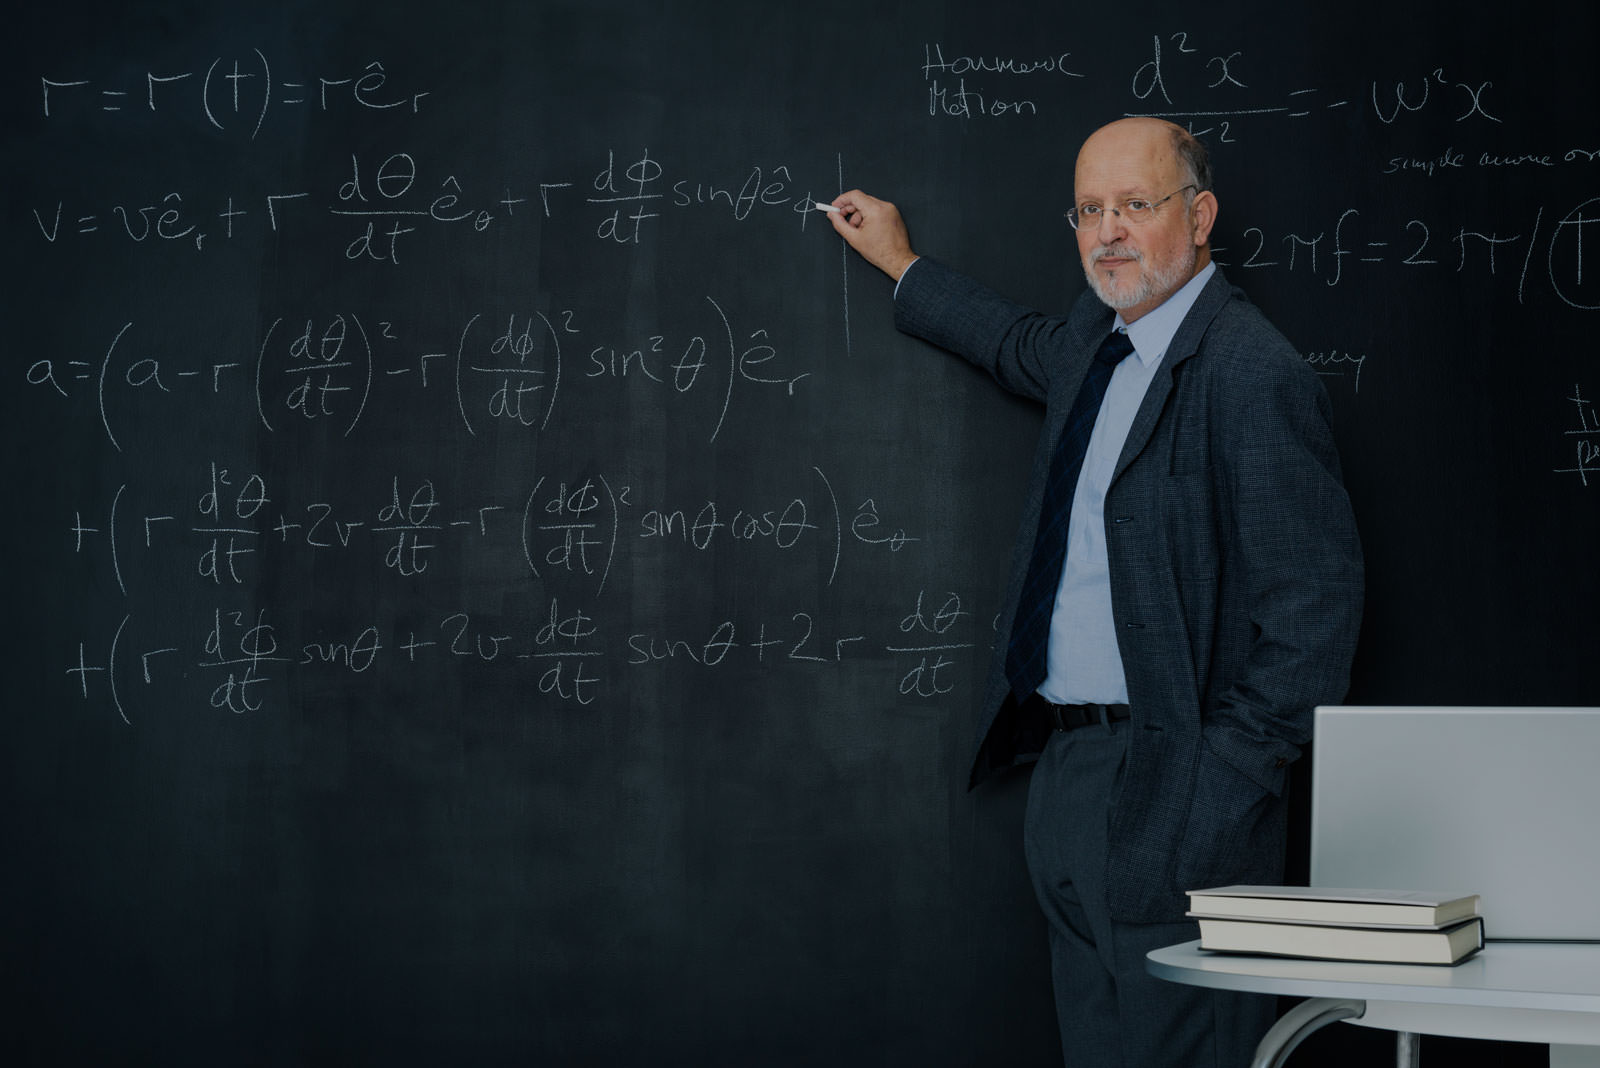 r = r(t) = r ê_r
v = v ê_r + r dθ/dt ê_θ + r dϕ/dt sinθ ê_ϕ
a = (a - r (dθ/dt)² - r (dϕ/dt)² sin²θ) ê_r
+ (r d²θ/dt + 2v dθ/dt - r (dϕ/dt)² sinθ cosθ) ê_θ
+ (r d²ϕ/dt sinθ + 2v dϕ/dt sinθ + 2r dθ/dt
Motion
d²x/t² = - w²x
simple
= 2πf = 2π/(t